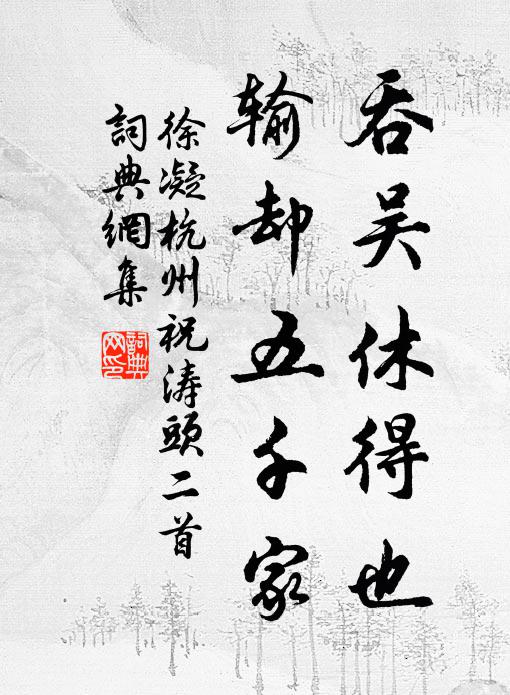 吞吴休得也
输却五千家
徐凝杭州祝涛頭二首
詞典網集
詞典网印